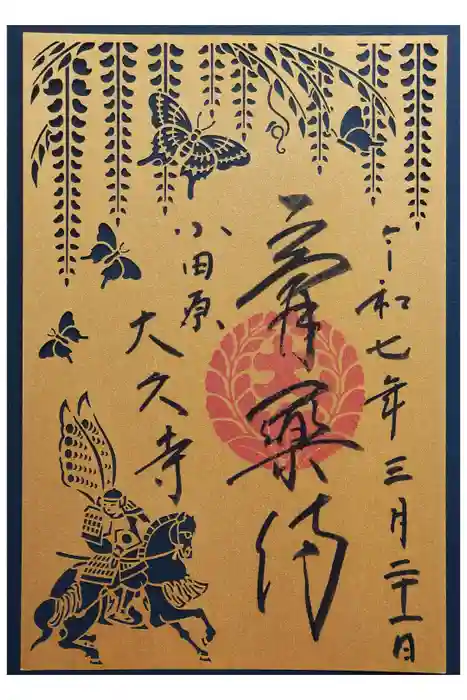 令和七年三月二十一日
膏薬侍
小田原
大久寺